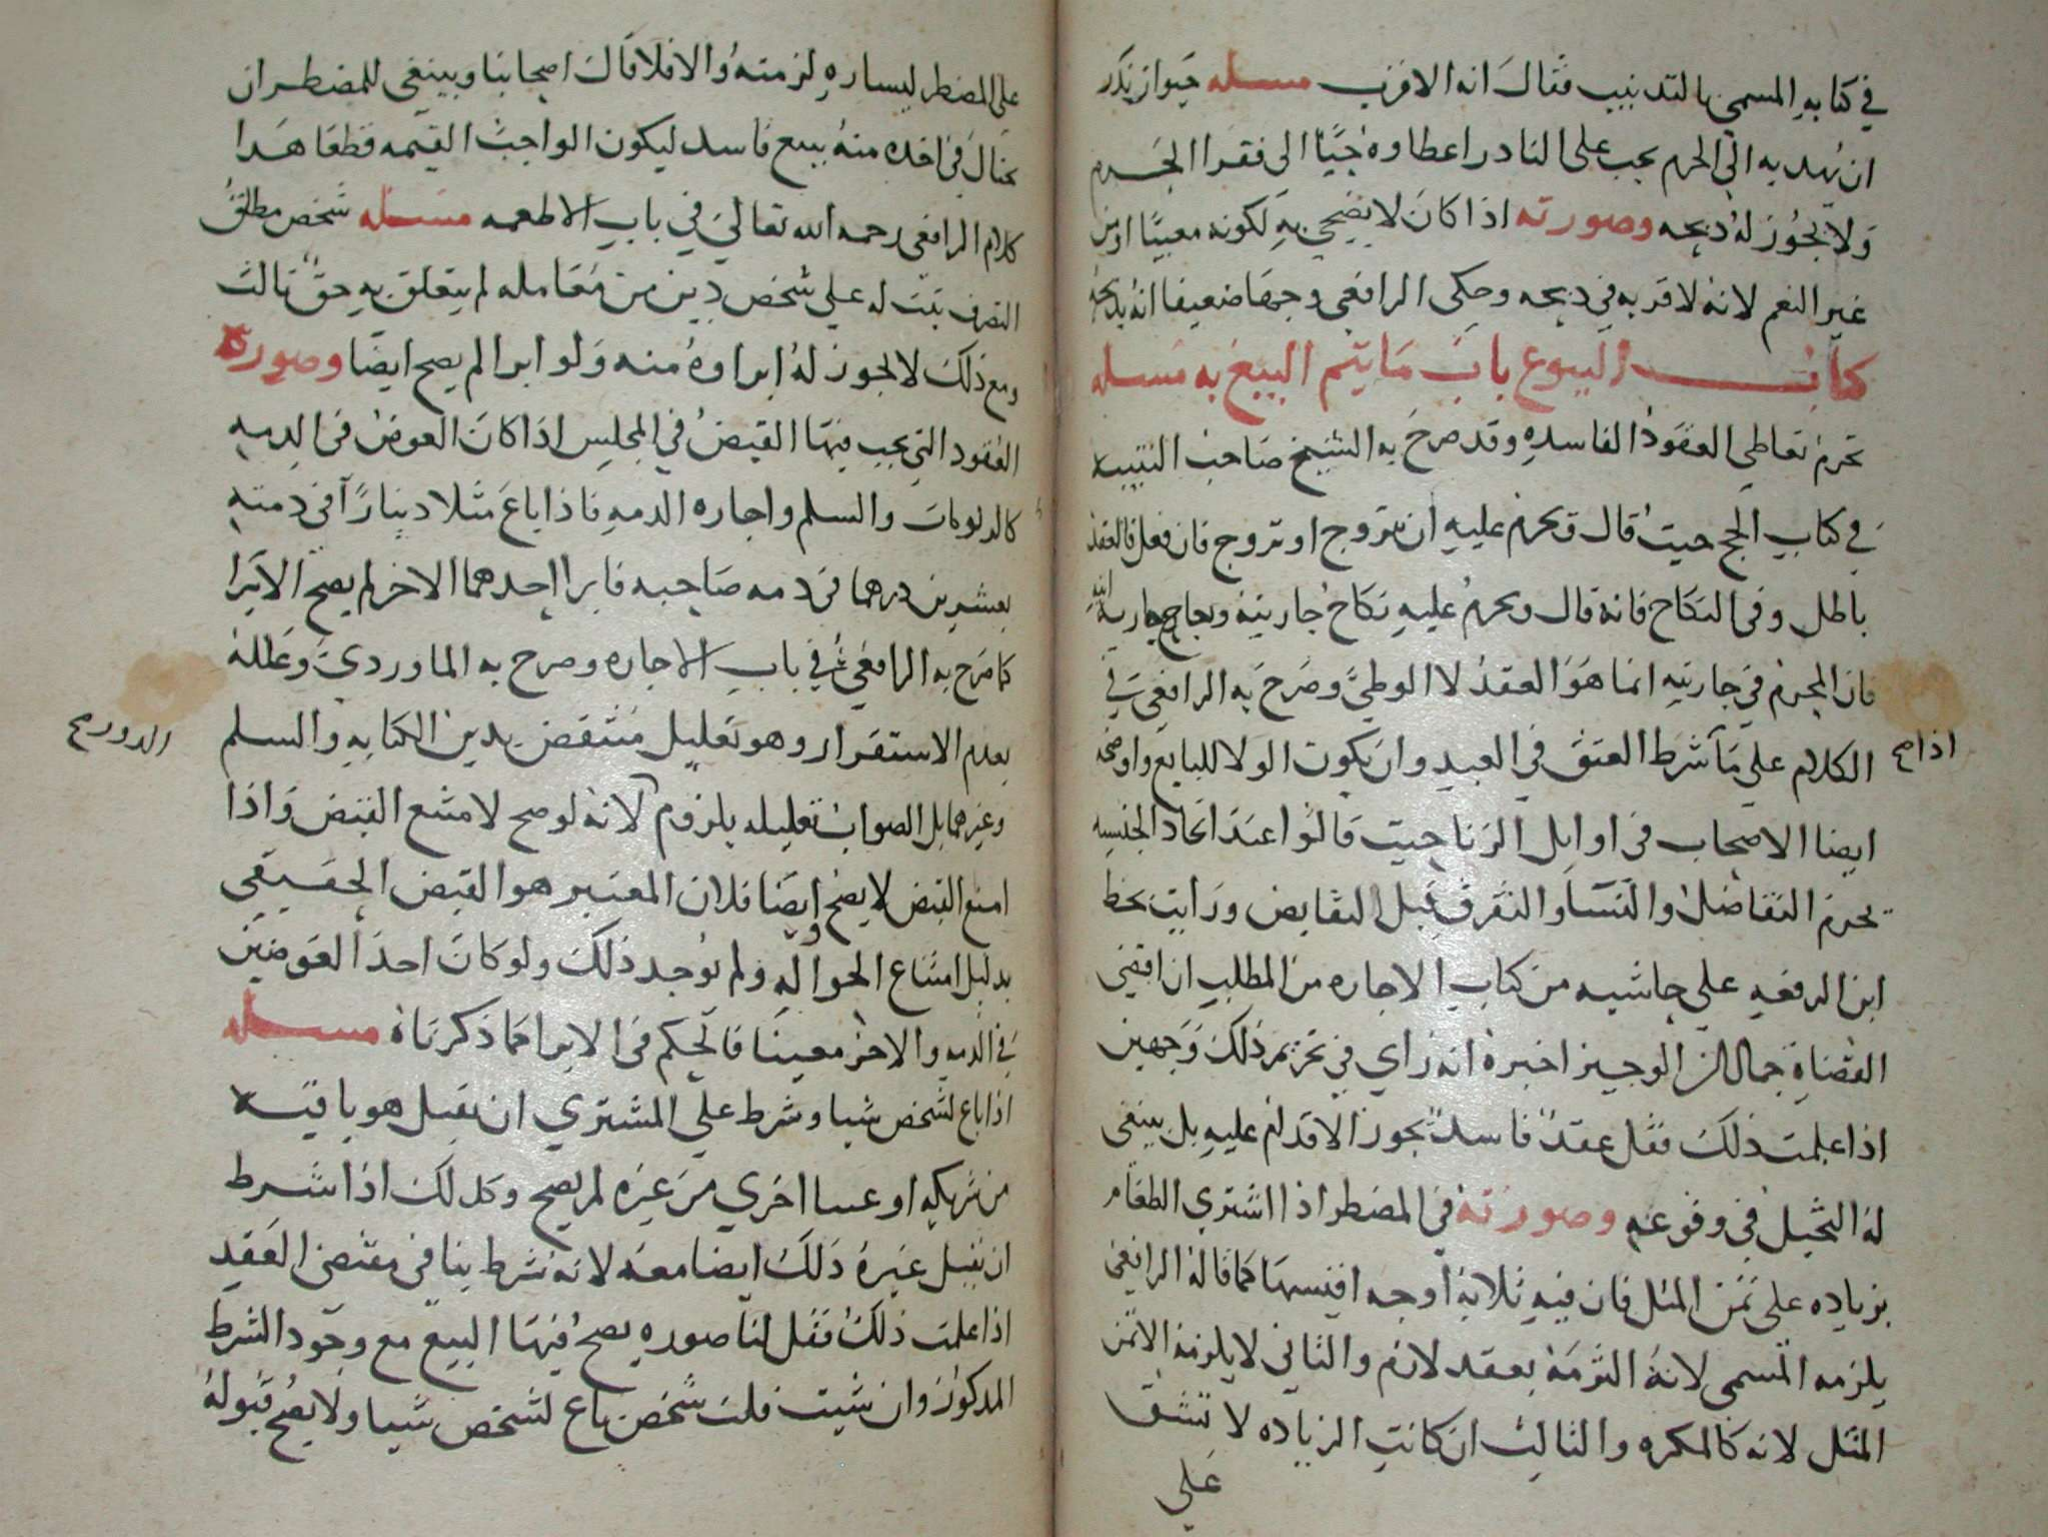 في كتابه المسمى بالتدنيب فقال انه الاقرب مسله حيوان نذر
ان يهديه الى الحرم يجب على النادر اعطاوه حيًّا الى فقرا الحرم
ولا يجوز له دبحه وصورته اذا كان لا يضحي به لكونه معيبًا او من
غير النعم لانه لا قربه في دبحه وحكى الرافعي وجها ضعيفا انه يدبحه
كتاب البيوع باب ما يتم البيع به مسله
تحرم تعاطي العقود الفاسده وقد صرح به الشيخ صاحب التنبيه
في كتاب الحج حيث قال وتحرم عليه ان يتزوج او تزوج فان فعل فالعقد
باطل وفي النكاح فانه قال ويحرم عليه نكاح جاريته ونكاح جاريه ابنه
فان المحرم في جاريته انما هو العقد لا الوطي وصرح به الرافعي في
الكلام على ما شرط العتق في العبد وان يكون الولا للبايع واوضحه
اذا صح
ايضا الاصحاب في اوايل الربا حيث قالوا عند اتحاد الجنسيه
يحرم التفاضل والنسا والتفرق قبل التقابض ورايت بخط
ابن الرفعه على حاشيه من كتاب الاجاره من المطلب ان اقضى
القضاة جمال الوجيز اخبره انه راي في تحريم ذلك وجهين
اذا علمت ذلك فقل عقد فاسد يجوز الاقدام عليه بل ينبغي
له التحيل في وقوعه وصورته في المضطر اذا اشتري الطعام
بزياده على ثمن المثل فان فيه ثلاثة اوجه اقيسها كما قاله الرافعي
يلزمه المسمى لانه التزمه بعقد لازم والثاني لا يلزمه الا ثمن
المثل لانه كالمكره والثالث ان كانت الزياده لا تشق
على
على المضطر ليساره لزمته والا فلا قال اصحابنا وينبغي للمضطر ان
يحتال في اخده منه ببيع فاسد ليكون الواجب القيمه قطعا هدا
كلام الرافعي رحمه الله تعالى في باب الاطعمه مسله شخص مطلق
التصرف ثبت له على شخص دين من معامله لم يتعلق به حق ثالث
ومع ذلك لا يجوز له ابراوه منه ولو ابرا لم يصح ايضا وصورته
العقود التي يجب فيها القبض في المجلس اذا كان العوض في الدمه
كالربويات والسلم واجاره الدمه فاذا باع مثلا دينارًا في دمته
بعشرين درهما في دمه صاحبه فابرا احدهما الاخر لم يصح الابرا
كما صرح به الرافعي في باب الاجاره وصرح به الماوردي وعلله
بعدم الاستقرار وهو تعليل منتقض بدين الكتابه والسلم
وغيرهما بل الصواب تعليله يلزم لانه لو صح لامتنع القبض واذا
امتنع القبض لا يصح ايضا فلان المعتبر هو القبض الحقيقي
بدليل امتناع الحواله ولم يوجد ذلك ولو كان احد العوضين
في الدمه والاخر معينا فالحكم في الابرا كما ذكرناه مسله
اذا باع لشخص شيا وشرط على المشتري ان يقبل هو باقيه
من شريكه او عينا اخري من غيره لم يصح وكدلك اذا شرط
ان يقبل غيره ذلك ايضا معه لانه شرط ينافي مقتضى العقد
اذا علمت ذلك فقل لنا صوره يصح فيها البيع مع وجود الشرط
المدكور وان شيت قلت شخص باع لشخص شيا ولا يصح قبوله